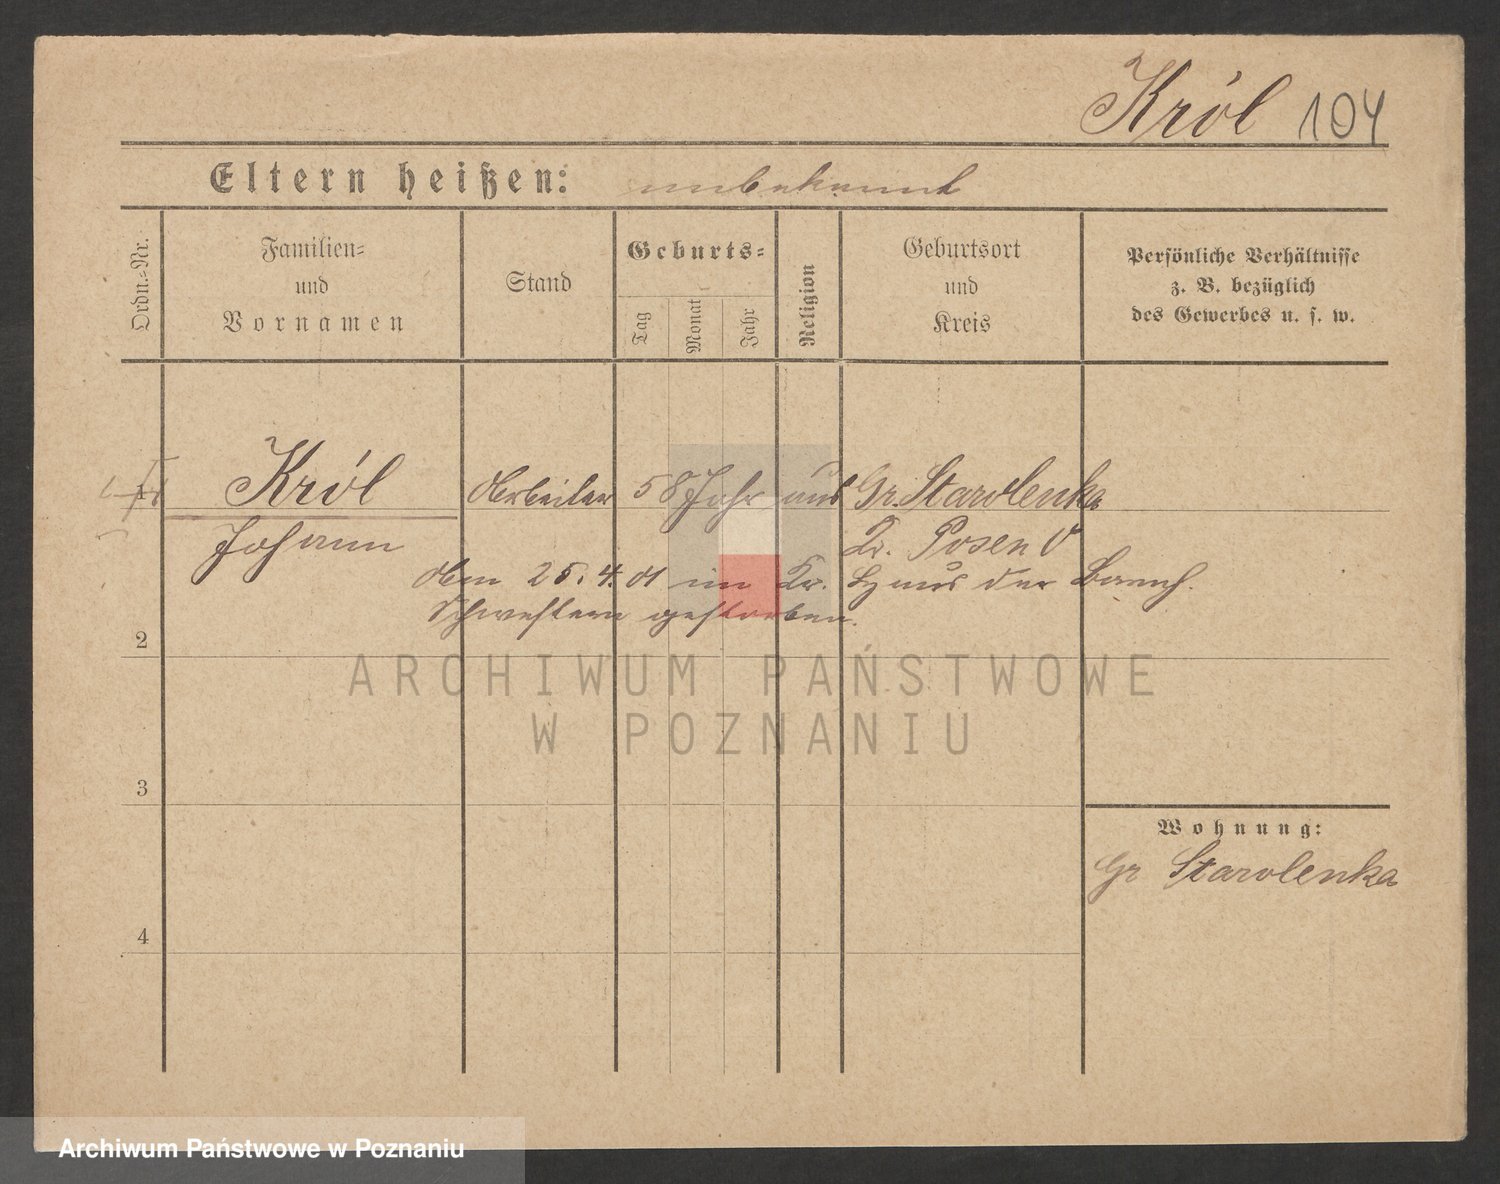 Król 104
Eltern heißen: unbekannt
Ordn.=Nr.
Familien=
und
Vornamen
Stand
Geburts=
Tag
Monat
Jahr
Religion
Geburtsort
und
Kreis
Persönliche Verhältnisse
z. B. bezüglich
des Gewerbes u. s. w.
1
Król Arbeiter 58 Jahr Gr. Starolenka
Johann Kr. Posen O
Am 25. 4. 01 im Kr. Haus der Barmh.
Schwestern gestorben.
2
ARCHIWUM PAŃSTWOWE
W POZNANIU
3
Wohnung:
Gr Starolenka
4
Archiwum Państwowe w Poznaniu